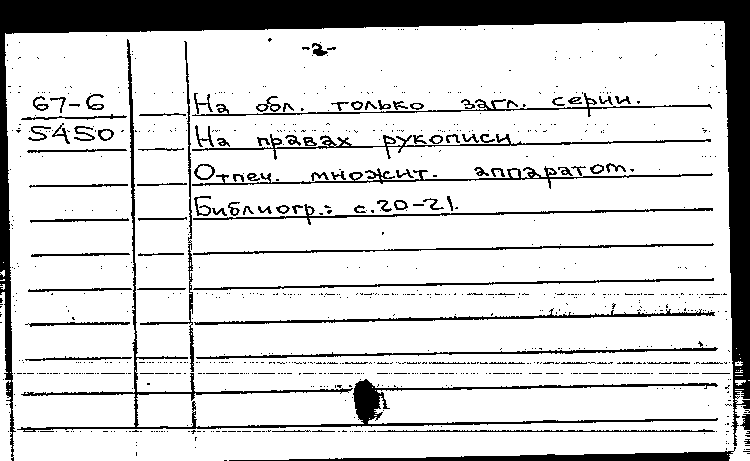 -2-
67-6 На обл. только загл. серии.
5450 На правах рукописи.
Отпеч. множит. аппаратом.
Библиогр.: с.20-21.